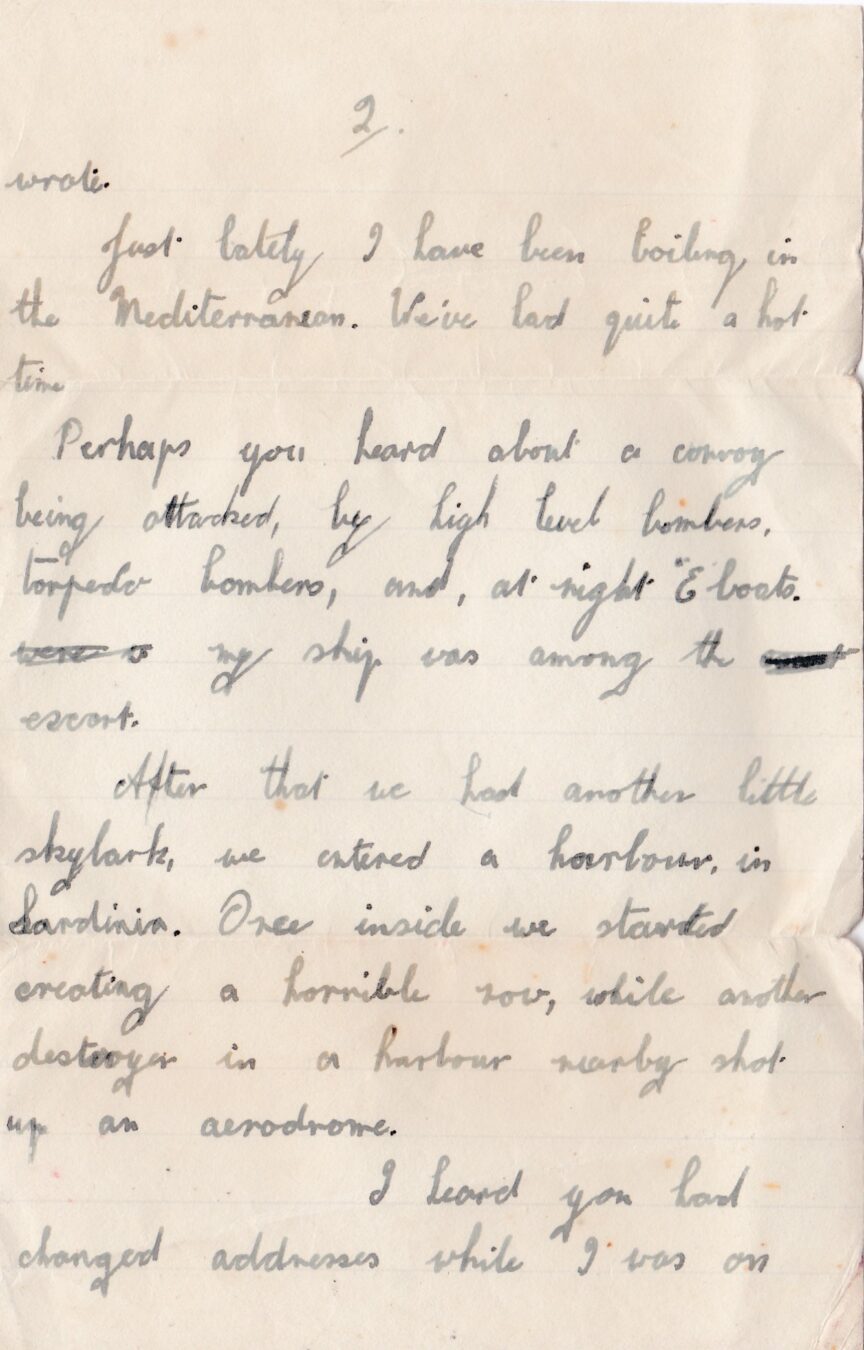 2/.
wrote.
Just lately I have been boiling in
the Mediterranean. We've had quite a hot
time
Perhaps you heard about a convoy
being attacked, by high level bombers,
torpedo bombers, and, at night "E boats.
were my ship was among the
escort.
After that we had another little
skylark, we entered a harbour, in
Sardinia. Once inside we started
creating a horrible row, while another
destroyer in a harbour nearby shot
up an aerodrome.
I heard you had
changed addresses while I was on